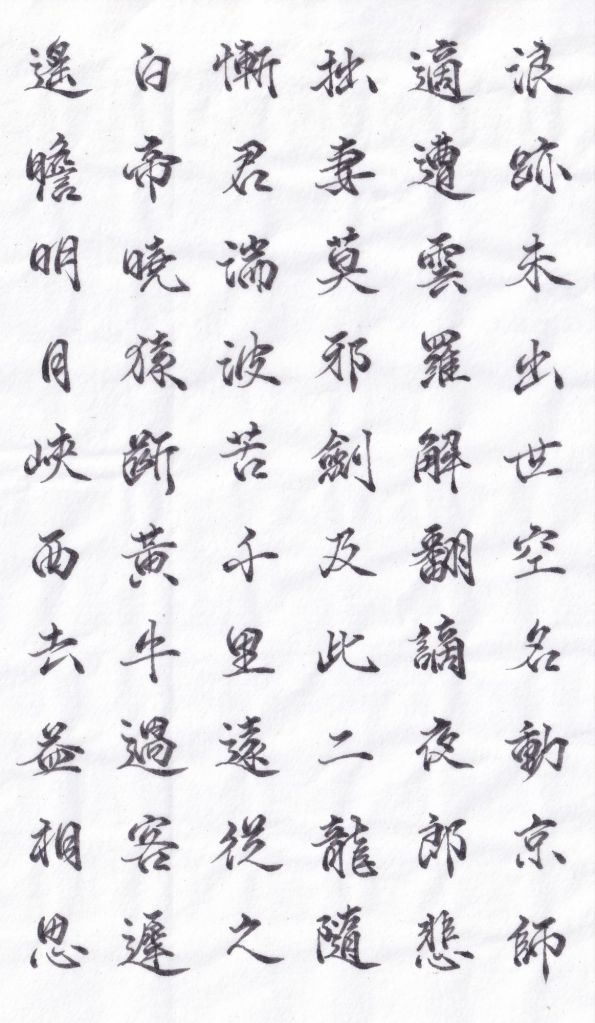 浪跡未出世空名動京師
適遭雲羅解翻謫夜郎悲
拙妻莫邪劍及此二龍隨
慚君湍波苦千里遠從之
白帝曉猿斷黃牛過客遲
遙瞻明月峽西去益相思